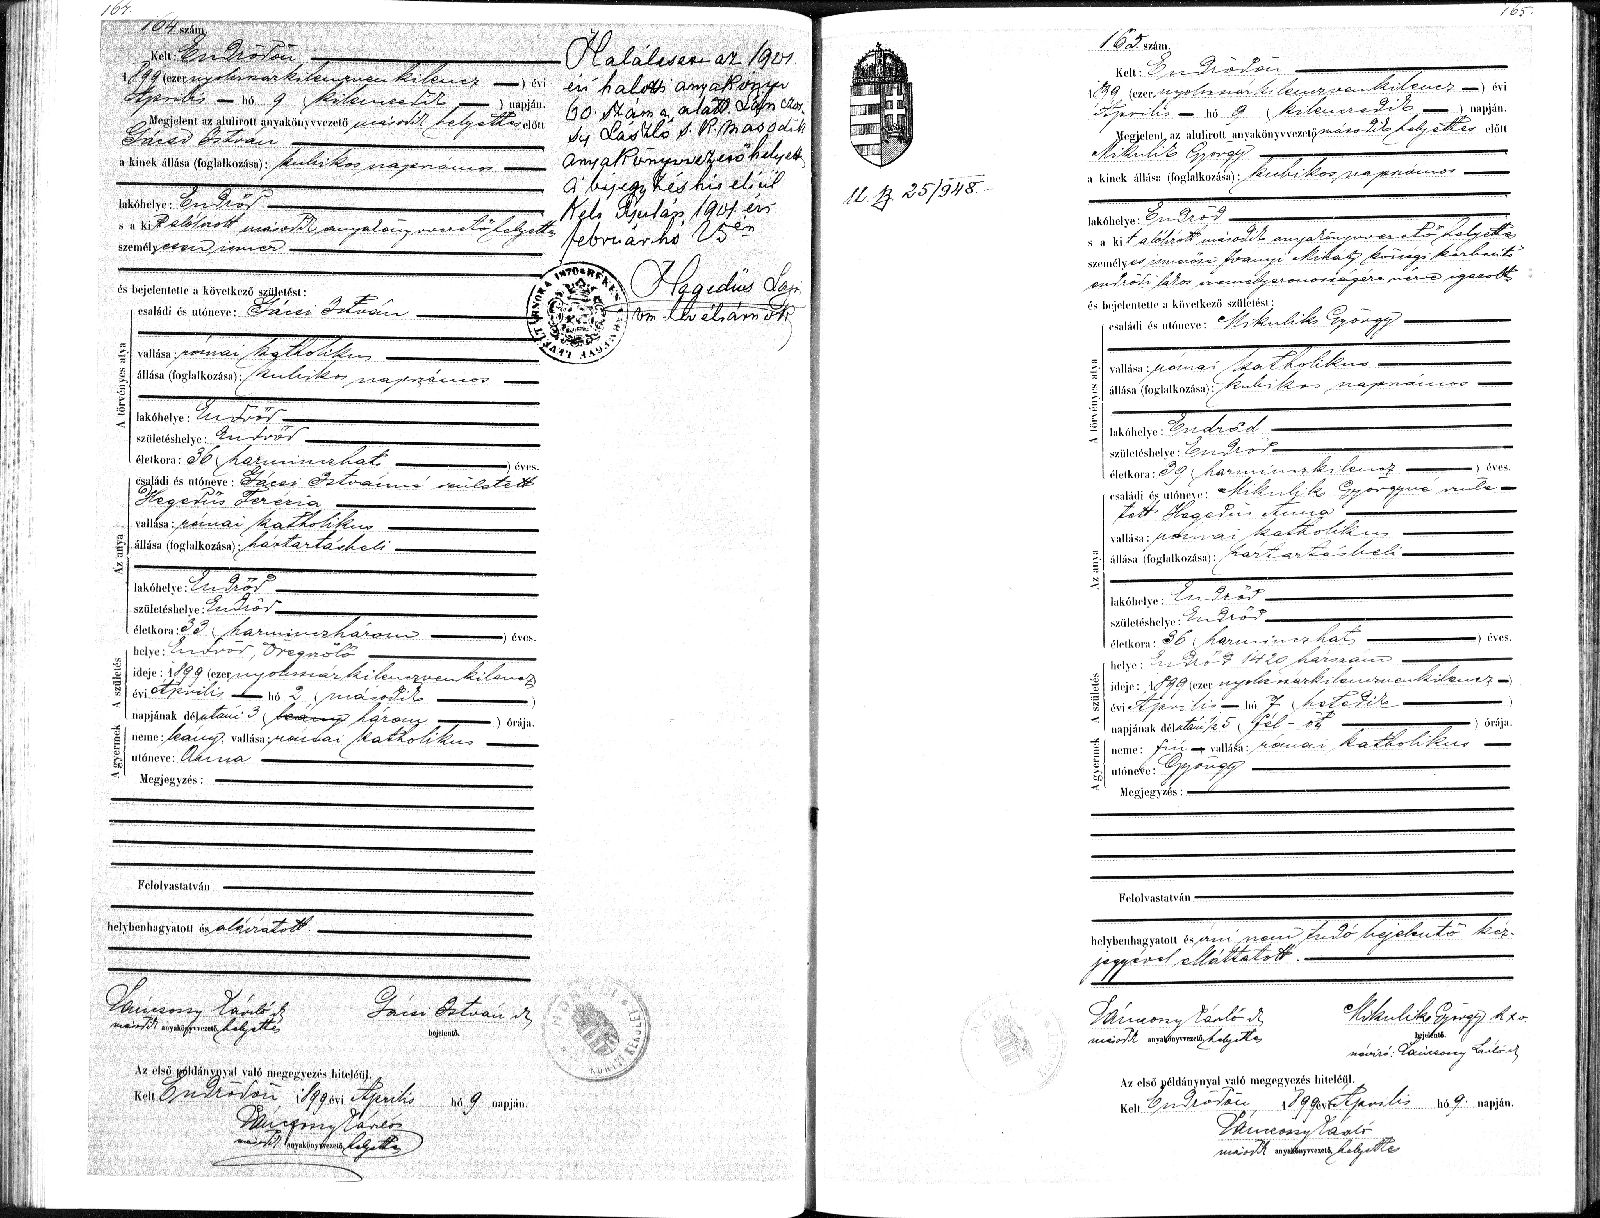 164.
164 szám.
Kelt: Endrődön
1899 (ezernyolczszázkilenczvenkilencz) évi
Április hó 9 (kilenczedik) napján.
Megjelent az alulirott anyakönyvvezető második helyettes előtt
Gácsi István
a kinek állása (foglalkozása): kubikos napszámos
lakóhelye: Endrőd
s a kit alólirott második anyakönyvvezető helyettes
személyesen ismer
és bejelentette a következő születést:
A törvényes atya
családi és utóneve: Gácsi István
vallása: római katholikus
állása (foglalkozása): kubikos napszámos
lakóhelye: Endrőd
születéshelye: Endrőd
életkora: 36 (harminczhat) éves.
Az anya
családi és utóneve: Gácsi Istvánné született
Hegedüs Terézia
vallása: római katholikus
állása (foglalkozása): háztartásbeli
lakóhelye: Endrőd
születéshelye: Endrőd
életkora: 33 (harminczhárom) éves.
A születés
helye: Endrőd, Öregszőlő
ideje: 1899 (ezernyolczszázkilenczvenkilencz)
évi Április hó 2 (második)
napjának délutáni 3 (három) órája.
A gyermek
neme: leány, vallása: római katholikus
utóneve: Anna
Megjegyzés:
Felolvastatván
helybenhagyatott és aláiratott.
második anyakönyvvezető helyettes
Gácsi István
bejelentő.
Az első példánynyal való megegyezés hiteléül.
Kelt Endrődön 1899 évi Április hó 9 napján.
második anyakönyvvezető helyettes
Haláleset az 1901
évi halotti anyakönyv
60. száma alatt
László s. k. második
anyakönyvvezető helyettes
A bejegyzés hiteléül
Kelt Gyulán, 1901. évi
február hó 25én
Hegedüs
vm. levéltárnok
165.
165 szám.
Kelt: Endrődön
1899 (ezernyolczszázkilenczvenkilencz) évi
Április hó 9 (kilenczedik) napján.
Megjelent az alulirott anyakönyvvezető második helyettes előtt
Mikulik György
a kinek állása (foglalkozása): kubikos napszámos
lakóhelye: Endrőd
s a kit alólirott második anyakönyvvezető helyettes
Mihály községi kézbesitő
endrődi lakos személyazonosságára nézve igazolt
és bejelentette a következő születést:
A törvényes atya
családi és utóneve: Mikulik György
vallása: római katholikus
állása (foglalkozása): kubikos napszámos
lakóhelye: Endrőd
születéshelye: Endrőd
életkora: 39 (harminczkilencz) éves.
Az anya
családi és utóneve: Mikulik Györgyné szüle-
tett Hegedüs Anna
vallása: római katholikus
állása (foglalkozása): háztartásbeli
lakóhelye: Endrőd
születéshelye: Endrőd
életkora: 36 (harminczhat) éves.
A születés
helye: Endrőd 1420 házszám
ideje: 1899 (ezernyolczszázkilenczvenkilencz)
évi Április hó 7 (hetedik)
napjának délutáni 1/2 5 (fél-öt) órája.
A gyermek
neme: fiú vallása: római katholikus
utóneve: György
Megjegyzés:
Felolvastatván
helybenhagyatott és irni nem tudó bejelentő kéz-
jegyével elláttatott.
második anyakönyvvezető helyettes
Mikulik György
bejelentő.
Az első példánynyal való megegyezés hiteléül.
Kelt Endrődön 1899 évi Április hó 9 napján.
második anyakönyvvezető helyettes